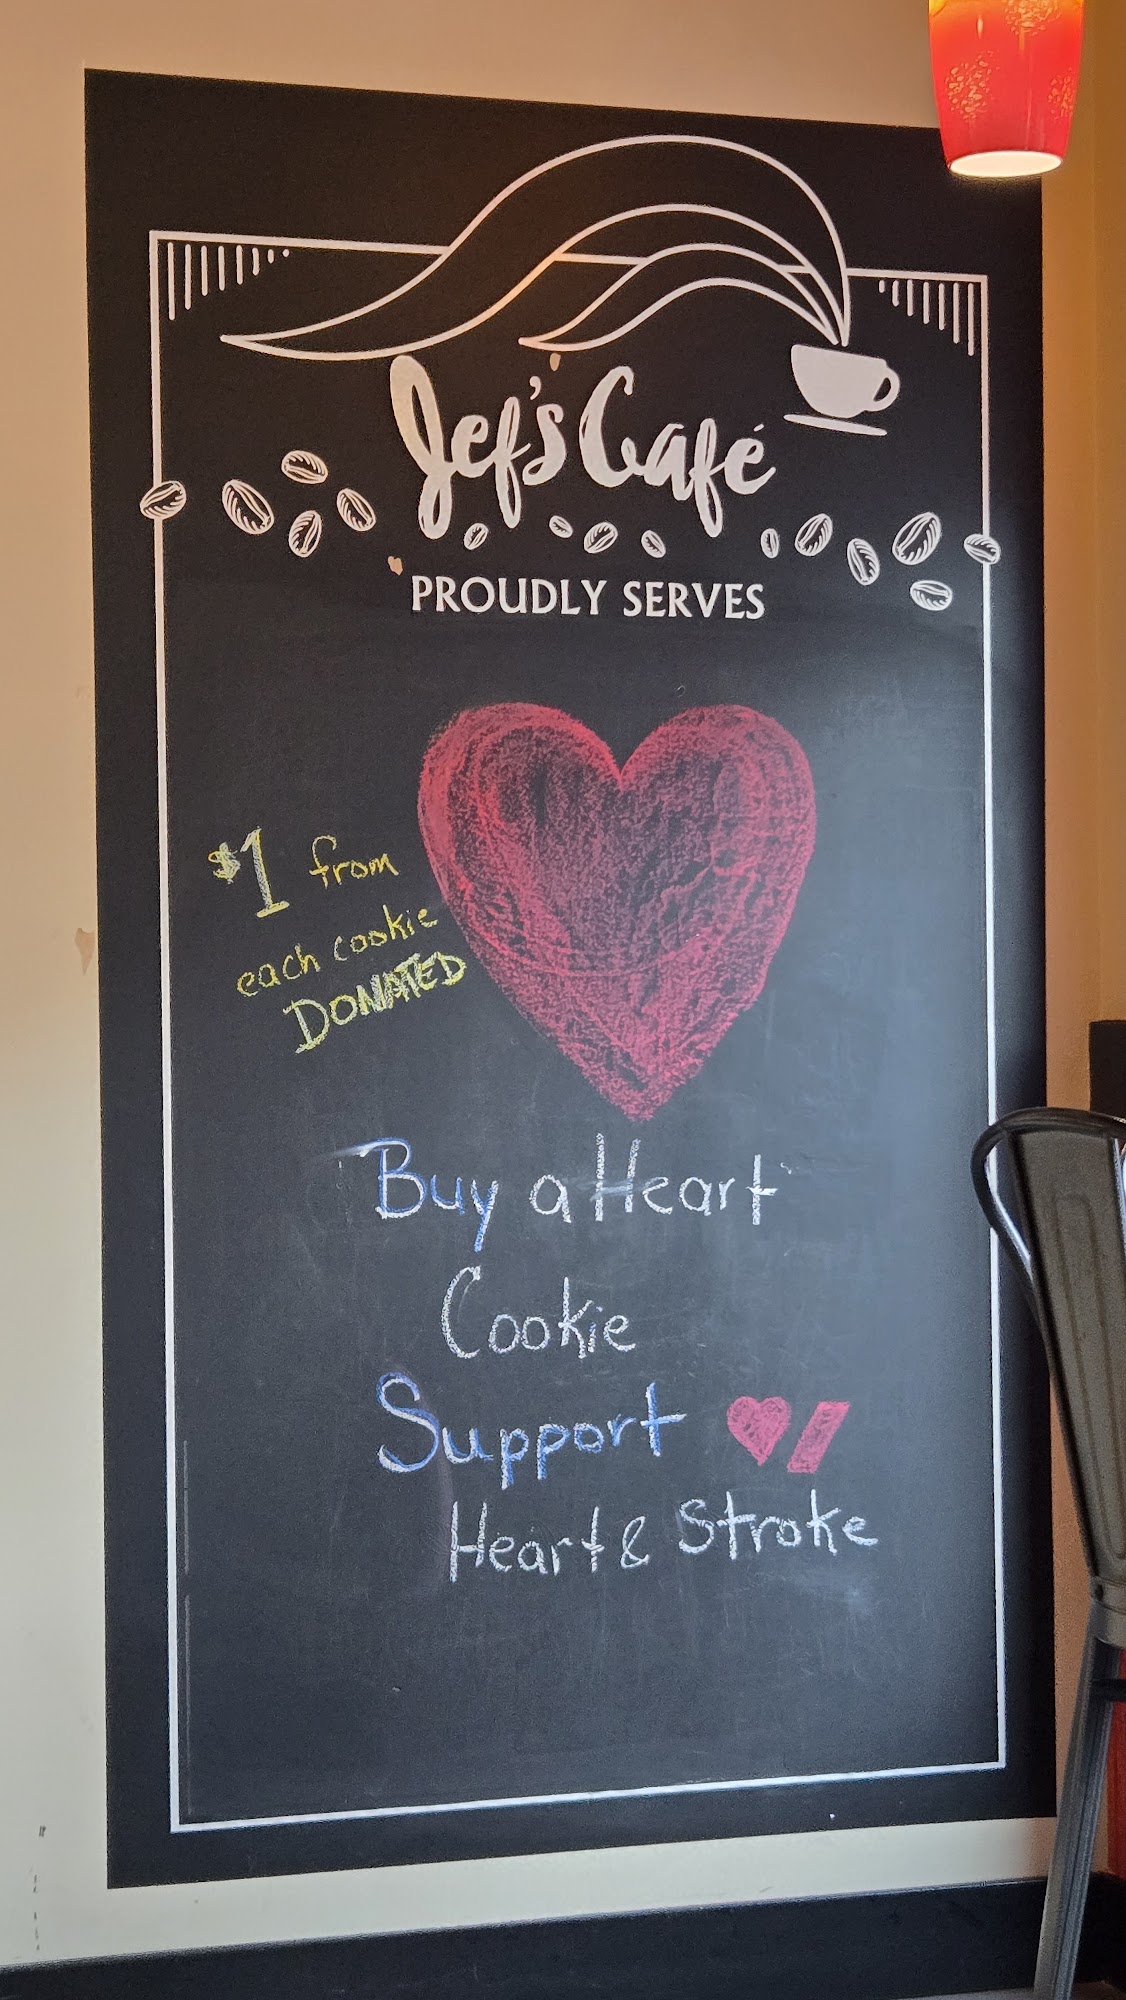 Jef's Café
PROUDLY SERVES
$1 from
each cookie
DONATED
Buy a Heart
Cookie
Support
Heart & Stroke